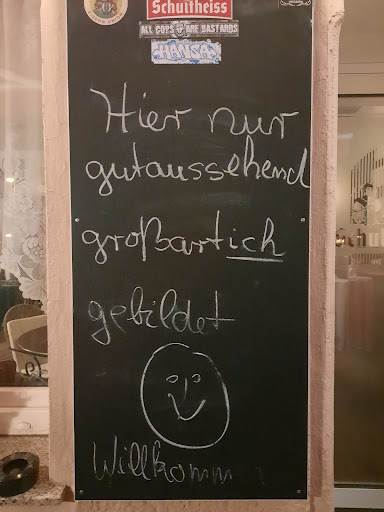 Schultheiss
ALL COPS ARE BASTARDS
HANSA
Hier nur
gutaussehend
großartich
gebildet
Willkomm